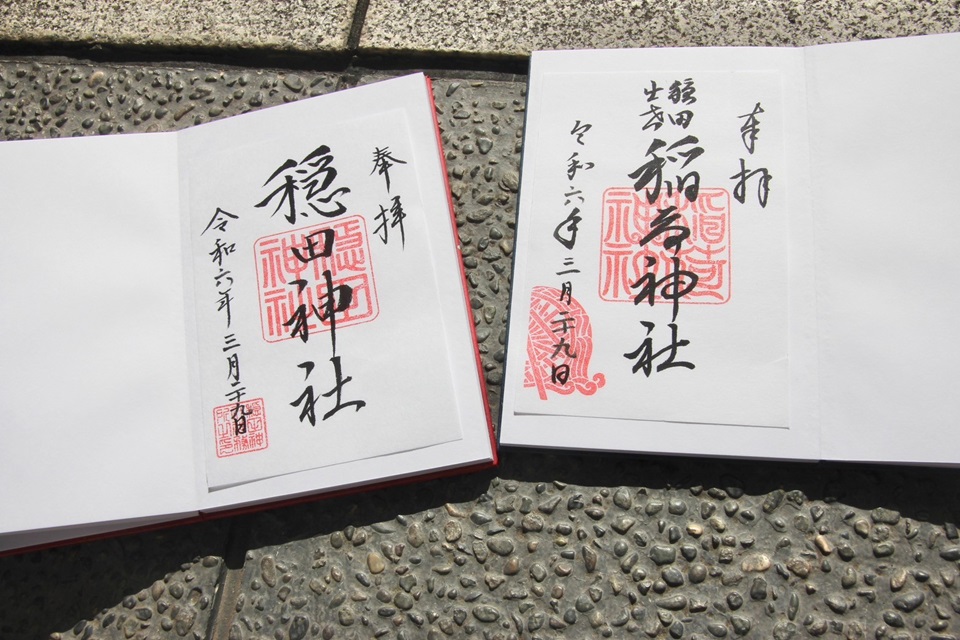 奉拝
穏田神社
令和六年三月二十九日
穏田神社
奉拝
穏田
出世
稲荷神社
令和六年三月二十九日